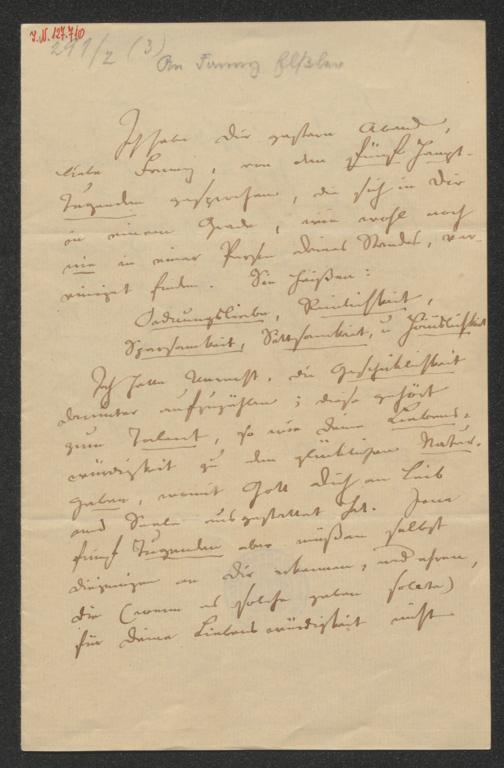 I.N. 127.710
291/2 (3)
An Fanny Elßler
Ich habe Dir gestern Abend,
liebe Fanny, von den fünf Haupt-
Tugenden gesprochen, die sich in Dir
in einem Grade, wie wohl noch
nie in einer Person deines Standes, ver-
einiget finden. Sie heißen:
Ordnungsliebe, Reinlichkeit,
Sparsamkeit, Sittsamkeit, u Häuslichkeit
Ich hatte Unrecht, die Geschicklichkeit
darunter aufzuzählen; diese gehört
zum Talent, so wie deine Liebens-
würdigkeit zu den glücklichen Natur-
gaben, womit Gott Dich an Leib
und Seele ausgestattet hat. Jene
fünf Tugenden aber müßen selbst
diejenigen an Dir erkennen, und ehren,
die (wenn es solche geben sollte)
für deine Liebenswürdigkeit nicht